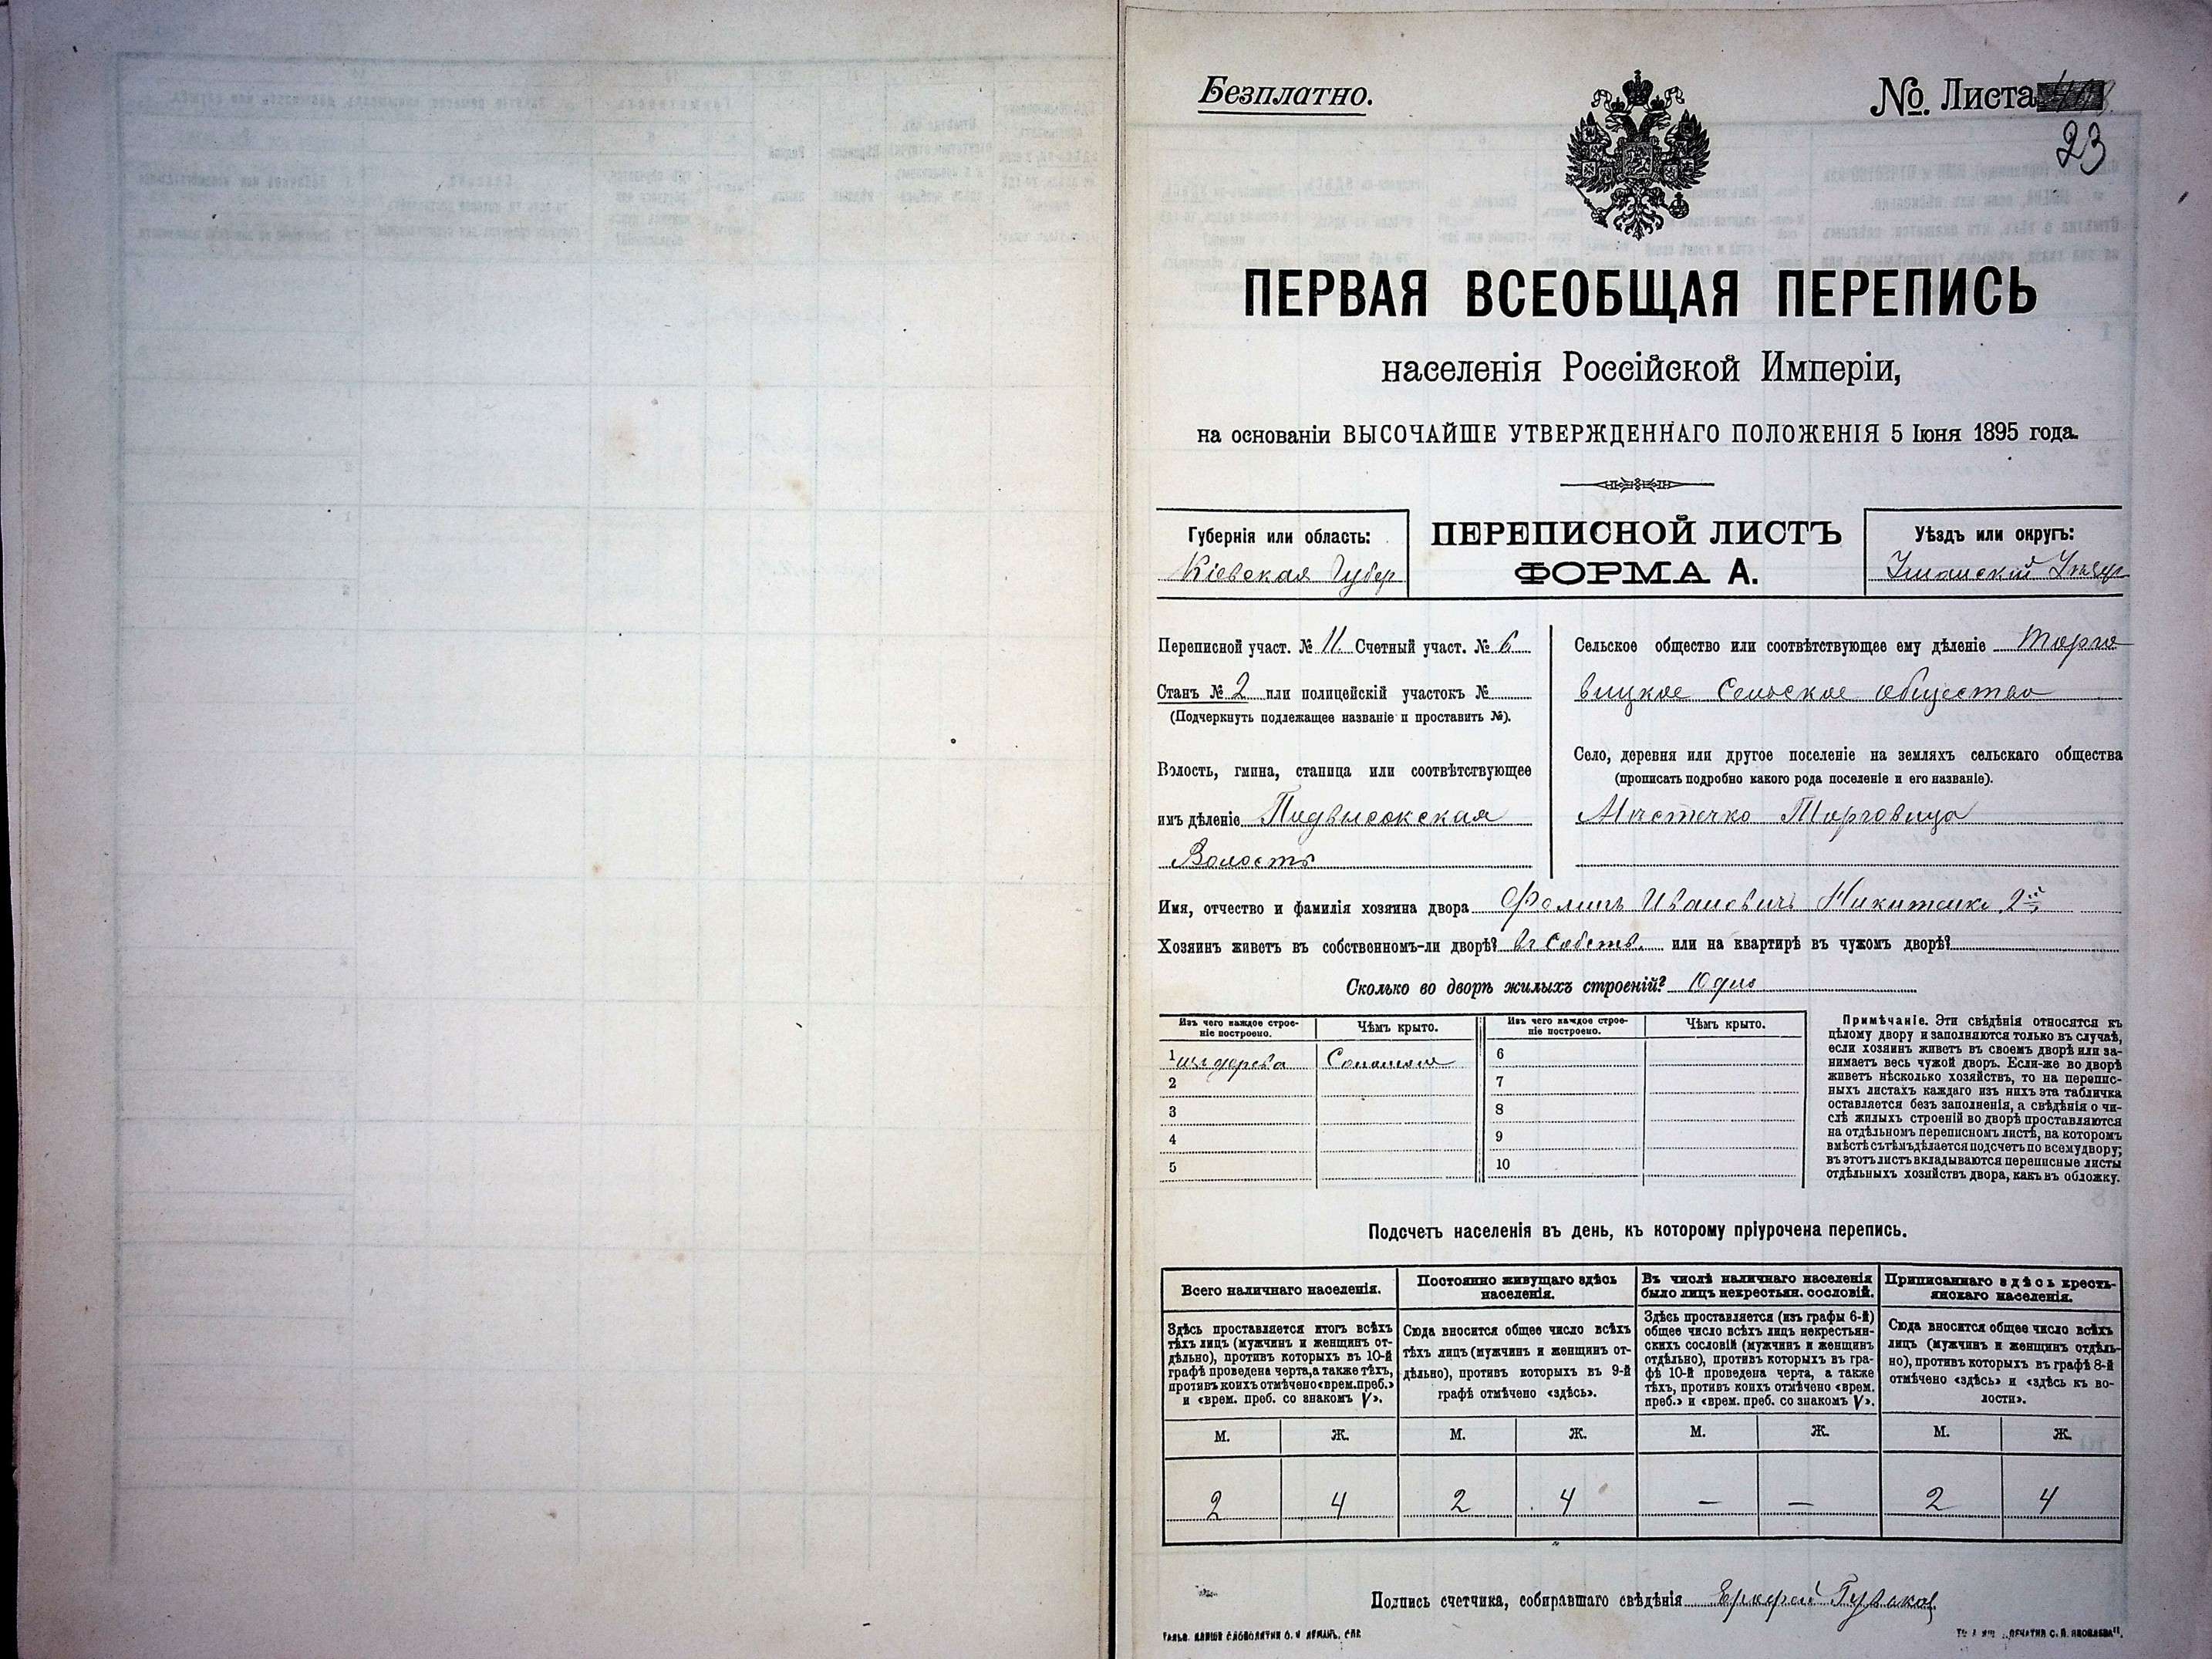 Безплатно.
№ Листа
23
ПЕРВАЯ ВСЕОБЩАЯ ПЕРЕПИСЬ
населенія Россійской Имперіи,
на основаніи ВЫСОЧАЙШЕ УТВЕРЖДЕННАГО ПОЛОЖЕНІЯ 5 Іюня 1895 года.
Губернія или область:
Кіевская Губер
ПЕРЕПИСНОЙ ЛИСТЪ
ФОРМА А.
Уѣздъ или округъ:
Уманскій Уѣздъ
Переписной участ. № 11. Счетный участ. № 6
Станъ № 2 или полицейскій участокъ №
(Подчеркнуть подлежащее названіе и проставить №).
Волость, гмина, станица или соотвѣтствующее
имъ дѣленіе Подвысокская
Волость
Сельское общество или соотвѣтствующее ему дѣленіе Торго
вицкое Сельское общество
Село, деревня или другое поселеніе на земляхъ сельскаго общества
(прописать подробно какого рода поселеніе и его названіе).
Мистечко Торговица
Имя, отчество и фамилія хозяина двора Ивановичъ Никитенко 2й
Хозяинъ живетъ въ собственномъ-ли дворѣ? въ Собств. или на квартирѣ въ чужомъ дворѣ?
Сколько во дворѣ жилыхъ строеній? Одно
Изъ чего каждое строе-
ніе построено.
Чѣмъ крыто.
Изъ чего каждое строе-
ніе построено.
Чѣмъ крыто.
1 изъ дерева Соломою 6
2 7
3 8
4 9
5 10
Примѣчаніе. Эти свѣдѣнія относятся къ
цѣлому двору и заполняются только въ случаѣ,
если хозяинъ живетъ въ своемъ дворѣ или за-
нимаетъ весь чужой дворъ. Если-же во дворѣ
живетъ нѣсколько хозяйствъ, то на перепис-
ныхъ листахъ каждаго изъ нихъ эта табличка
оставляется безъ заполненія, а свѣдѣнія о чи-
слѣ жилыхъ строеній во дворѣ проставляются
на отдѣльномъ переписномъ листѣ, на которомъ
вмѣстѣ съ тѣмъ дѣлается подсчетъ по всему двору;
въ этотъ листъ вкладываются переписные листы
отдѣльныхъ хозяйствъ двора, какъ въ обложку.
Подсчетъ населенія въ день, къ которому пріурочена перепись.
Всего наличнаго населенія.
Здѣсь проставляется итогъ всѣхъ
тѣхъ лицъ (мужчинъ и женщинъ от-
дѣльно), противъ которыхъ въ 10-й
графѣ проведена черта, а также тѣхъ,
противъ коихъ отмѣчено «врем. преб.»
и «врем. преб. со знакомъ V».
Постоянно живущаго здѣсь
населенія.
Сюда вносится общее число всѣхъ
тѣхъ лицъ (мужчинъ и женщинъ от-
дѣльно), противъ которыхъ въ 9-й
графѣ отмѣчено «здѣсь».
Въ числѣ наличнаго населенія
было лицъ некрестьян. сословій.
Здѣсь проставляется (изъ графы 6-й)
общее число всѣхъ лицъ некрестьян-
скихъ сословій (мужчинъ и женщинъ
отдѣльно), противъ которыхъ въ гра-
фѣ 10-й проведена черта, а также
тѣхъ, противъ коихъ отмѣчено «врем.
преб.» и «врем. преб. со знакомъ V».
Приписаннаго здѣсь кресть-
янскаго населенія.
Сюда вносится общее число всѣхъ
лицъ (мужчинъ и женщинъ отдѣль-
но), противъ которыхъ въ графѣ 8-й
отмѣчено «здѣсь» и «здѣсь къ во-
лости».
М. Ж. М. Ж. М. Ж. М. Ж.
2 4 2 4 — — 2 4
Подпись счетчика, собиравшаго свѣдѣнія